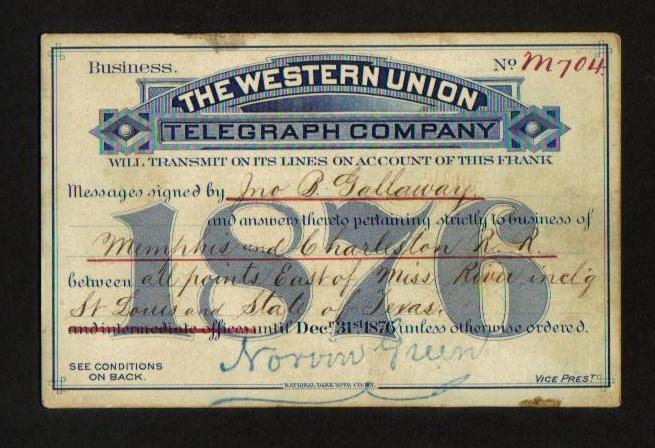 Business.
No M704
THE WESTERN UNION
TELEGRAPH COMPANY
WILL TRANSMIT ON ITS LINES ON ACCOUNT OF THIS FRANK
Messages signed by Jno P. Gallaway
and answers thereto pertaining strictly to business of
Memphis and Charleston R. R.
between all points East of Miss River incl'g
St Louis and State of Texas.
and intermediate offices until Decr. 31st 1876 unless otherwise ordered.
1876
Norvin Green
SEE CONDITIONS
ON BACK.
VICE PREST.
NATIONAL BANK NOTE CO. NY.